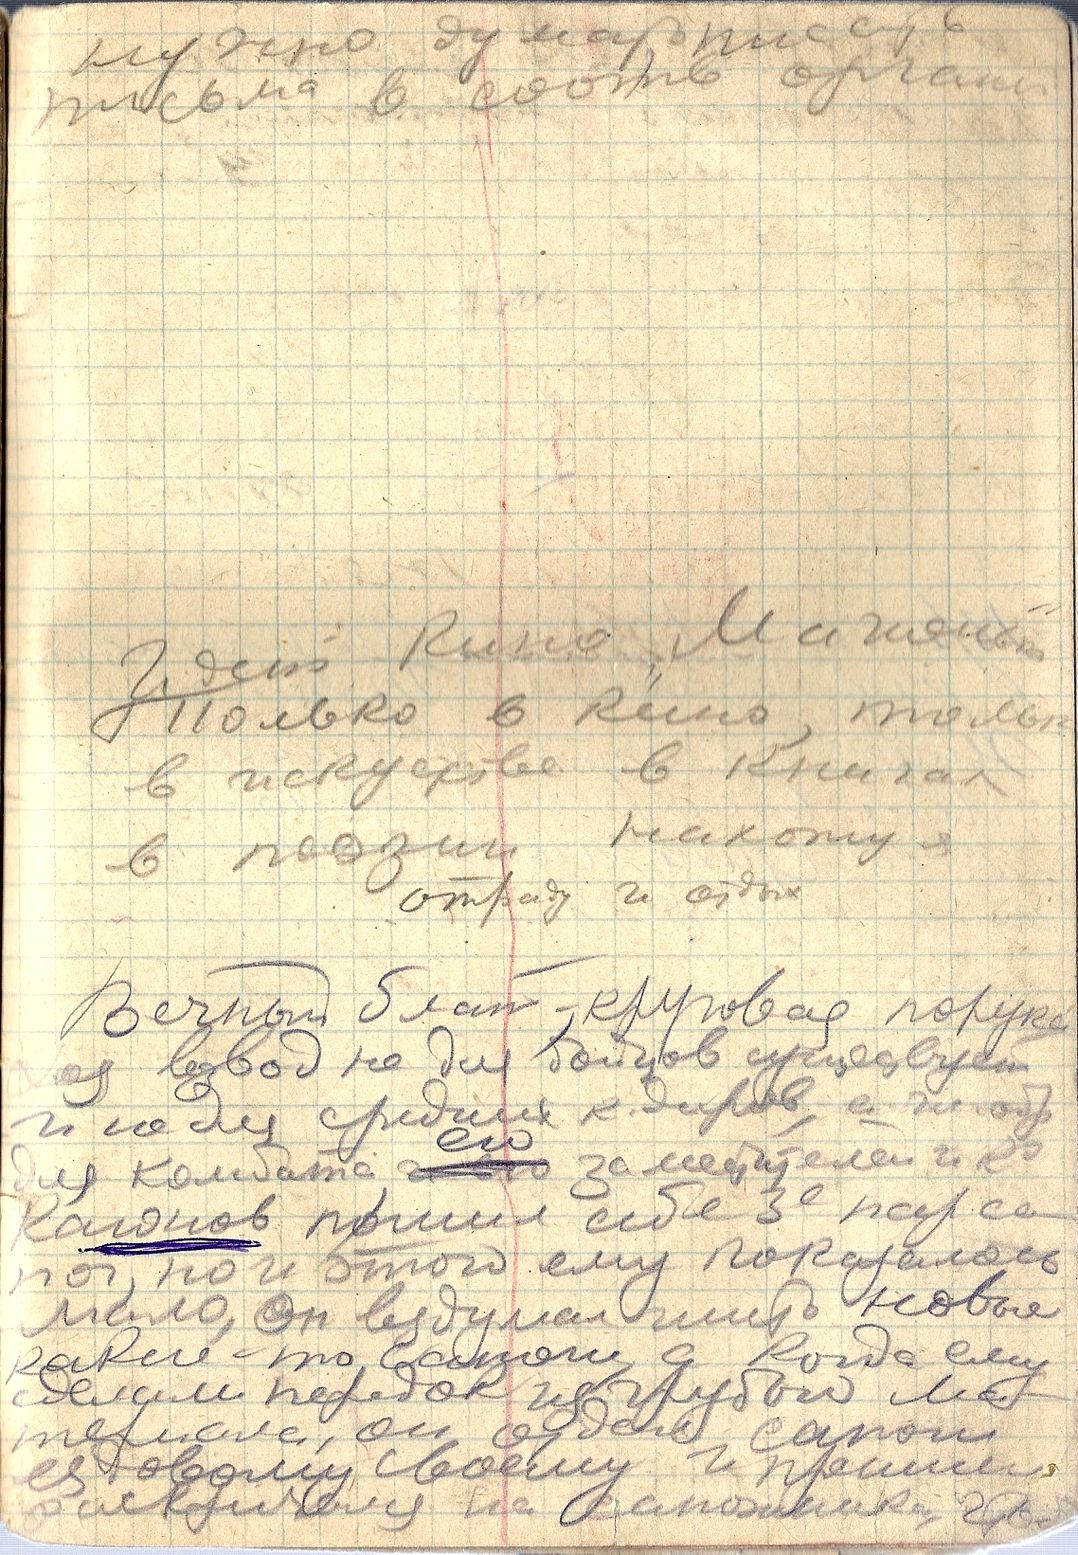 нужно думать писать
письма в соотв органы
Идет кино „Машенька“
Только в кино, только
в искусстве в книгах
в поэзии нахожу я
отраду и отдых
Вечный блат – круговая порука
взвод не для бойцов существует
и не для средних к-диров, а
для комбата, его заместителей и
Каюнов пошил себе 3е пары са-
пог, но и этого ему показалось
мало, он вздумал шить новые
какие-то сапоги, а когда ему
сделали передок из грубого ма-
териала, он отдал сапоги
ездовому своему и
на сапожника,